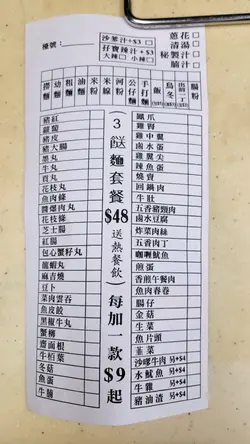 檯號：
沙爹汁+$3
孖寶辣汁+$3
大辣 小辣
蔥花
清湯
秘製汁
腩汁
撈麵
幼麵
粗麵
油麵
米粉
米線
河粉
公仔麵
飯
烏冬
腸粉
3餸麵套餐
$48
送熱餐飲
每加一款
$9起
豬紅
蘿蔔
豬皮
豬大腸
墨丸
牛丸
貢丸
花枝丸
魚肉條
醬爆肉丸
花枝條
芝士腸
紅腸
包心蟹籽丸
龍蝦丸
麻吉燒
豆卜
菜肉雲吞
魚皮餃
黑椒牛丸
蟹柳
齋面根
牛栢葉
冬菇
魚蛋
牛腩
鳳爪
雞腎
雞中翼
鹵水蛋
雞翼尖
辣魚蛋
燒賣
回鍋肉
牛肚
五香豬頸肉
鹵水雞肉
炸菜肉絲
五香肉丁
咖喱魷魚
煎蛋
香煎午餐肉
魚肉春卷
腸仔
金菇
生菜
魚片頭
韭菜
沙嗲牛肉 另+$4
水魷魚 另+$4
牛雜 另+$4
豬油渣 另+$4